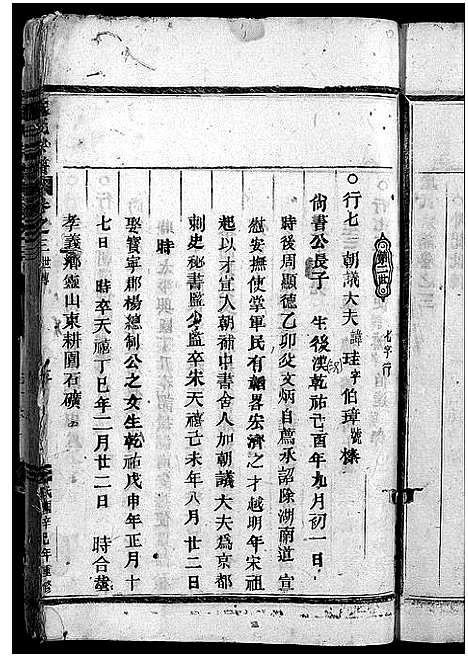 第二世
七字行
○行七三朝議大夫諱珪字伯璋號檪
尙書公長子 生後漢乾祐己酉年九月初一日
時後周顯德乙卯癸文炳自薦承詔除湖南道宣
慰安撫使掌軍民有韜畧宏濟之才越明年宋祖
起以才宣入朝補中書舍人加朝議大夫爲京都
刺史秘書監少監卒宋天禧己未年八月廿二日
時
娶寶寧郡楊總制公之女生乾祐戊申年正月十
七日 時卒天禧丁巳年二月廿二日 時合塟
孝義鄉靈山東耕圍石礦
之三 世傳
民國辛巳年重修